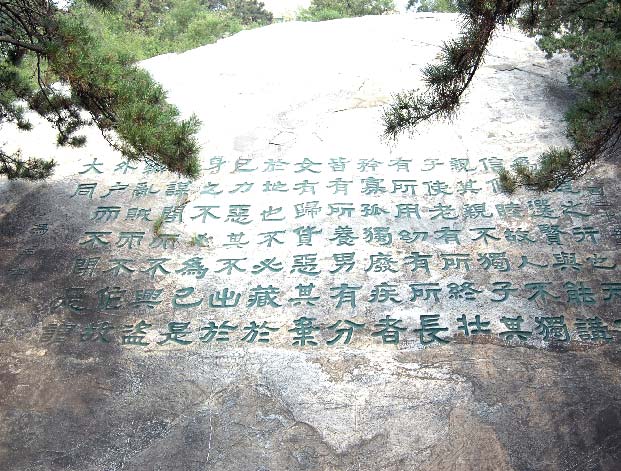 之行也
為選賢與能講
信修睦故人不獨
親其親不獨子其
子使老有所終壯
有所用幼有所長
矜寡孤獨廢疾者
皆有所養男有分
女有歸貨惡其棄
於地也不必藏於
己力惡其不出於
身也不必為己是
謀閉而不興盜
亂賊而不作故
外户而不閉是謂
大同